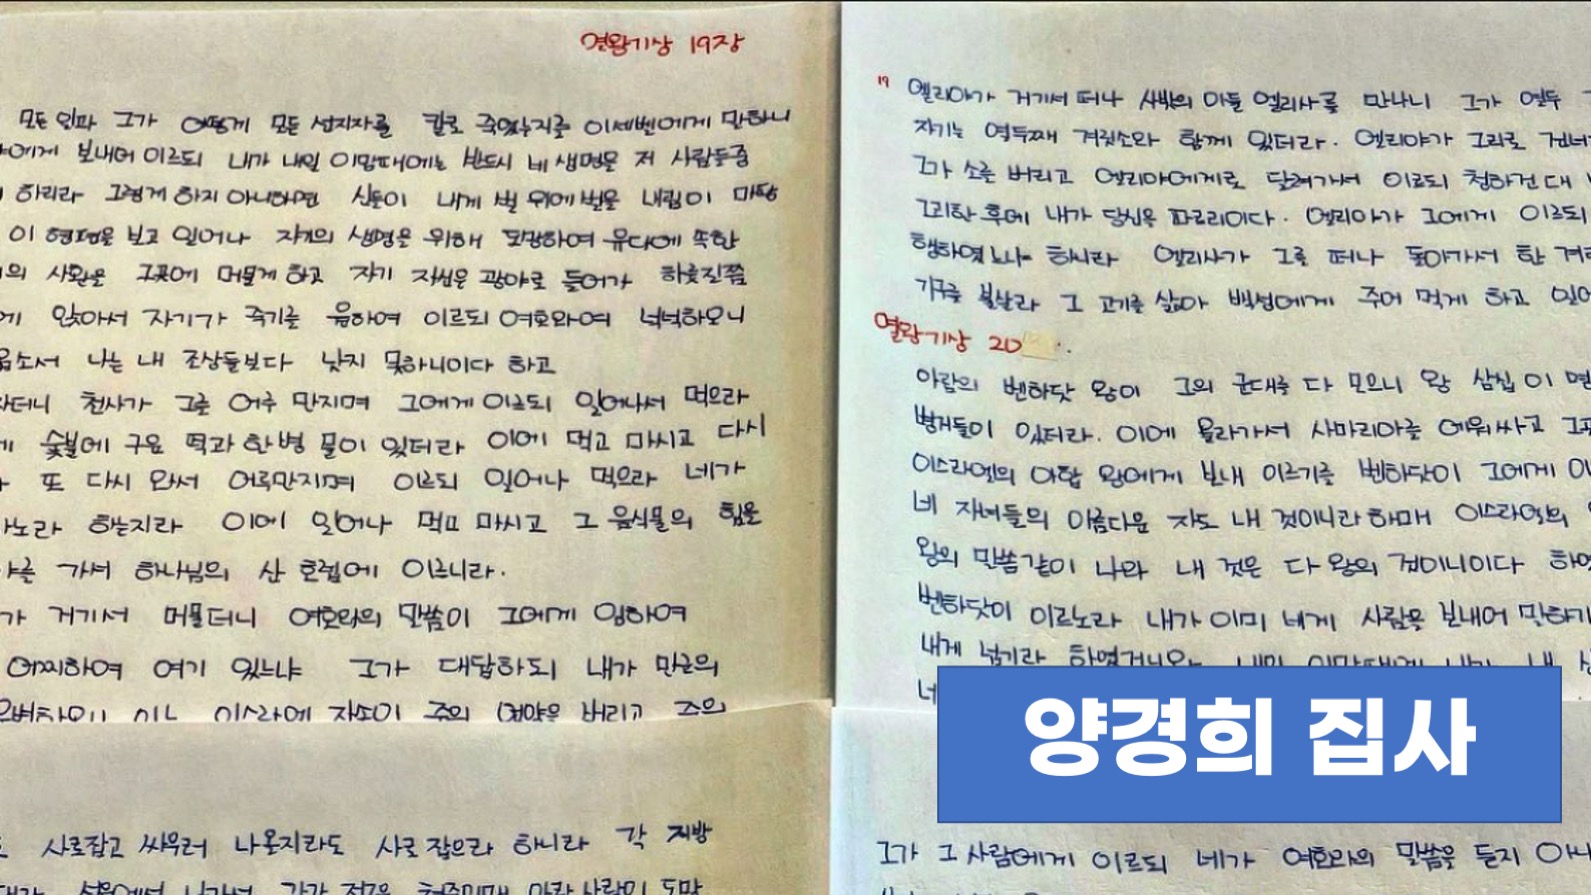 열왕기상 19장
모든 일과 그가 어떻게 모든 선지자를 칼로 죽였는지를 이세벨에게 말하니
에게 보내어 이르되 내가 내일 이맘때에는 반드시 네 생명을 저 사람들중
하리라 그렇게 하지 아니하면 신들이 내게 벌 위에 벌을 내림이 마땅
이 형편을 보고 일어나 자기의 생명을 위해 도망하여 유다에 속한
의 사환을 그곳에 머물게 하고 자기 자신은 광야로 들어가 하룻길쯤
에 앉아서 자기가 죽기를 원하여 이르되 여호와여 넉넉하오니
옵소서 나는 내 조상들보다 낫지 못하니이다 하고
자더니 천사가 그를 어루 만지며 그에게 이르되 일어나서 먹으라
숯불에 구운 떡과 한 병 물이 있더라 이에 먹고 마시고 다시
또 다시 와서 어루만지며 이르되 일어나 먹으라 네가
하는지라 이에 일어나 먹고 마시고 그 음식물의 힘을
가서 하나님의 산 호렙에 이르니라.
가 거기서 머물더니 여호와의 말씀이 그에게 임하여
어찌하여 여기 있느냐 그가 대답하되 내가 만군의
이는 이스라엘 자손이 주의 언약을 버리고 주의
사로잡고 싸우러 나올지라도 사로 잡으라 하니라 각 지방
19 엘리야가 거기서 떠나 사밧의 아들 엘리사를 만나니 그가 열두
자기는 열두째 겨릿소와 함께 있더라. 엘리야가 그리로 건너
그가 소를 버리고 엘리야에게로 달려가서 이르되 청하건대
그리한 후에 내가 당신을 따르리이다. 엘리야가 그에게 이르되
행하였느냐 하니라 엘리사가 그를 떠나 돌아가서 한 겨리
기구를 불살라 그 고기를 삶아 백성에게 주어 먹게 하고 일어
열왕기상 20
아람의 벤하닷 왕이 그의 군대를 다 모으니 왕 삼십 이 명
병거들이 있더라. 이에 올라가서 사마리아를 에워싸고
이스라엘의 아합 왕에게 보내 이르기를 벤하닷이 그에게
네 자녀들의 아름다운 자도 내 것이니라 하매 이스라엘의
왕의 말씀같이 나와 내 것은 다 왕의 것이니이다
벤하닷이 이르노라 내가 이미 네게 사람을 보내어 말하기
내게 넘기라 하였거니와
양경희 집사
그가 그 사람에게 이르되 네가 여호와의 말씀을 듣지 아니